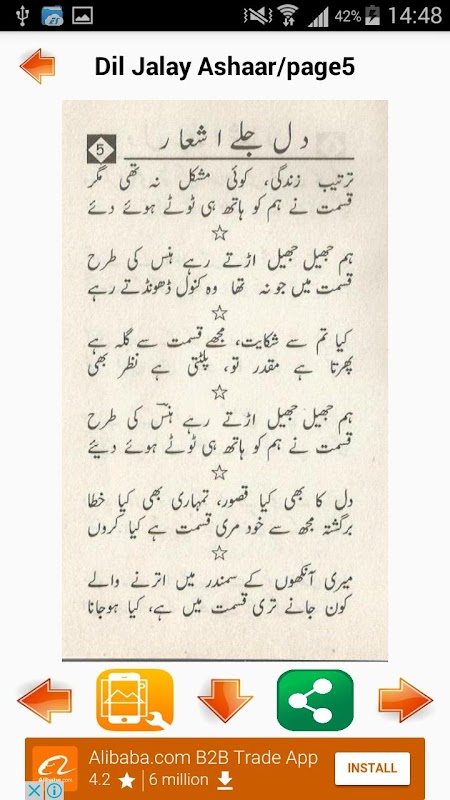 42% 14:48
Dil Jalay Ashaar/page5
دل جلے اشعار
5
ترتیب زندگی، کوئی مشکل نہ تھی مگر
قسمت نے ہم کو ہاتھ ہی ٹوٹے ہوئے دئے
ہم جھیل جھیل اڑتے رہے ہنس کی طرح
قسمت میں جو نہ تھا وہ کنول ڈھونڈتے رہے
کیا تم سے شکایت، مجھے قسمت سے گلہ ہے
پھرتا ہے مقدر تو، پلٹتی ہے نظر بھی
ہم جھیل جھیل اڑتے رہے ہنس کی طرح
قسمت نے ہم کو ہاتھ ہی ٹوٹے ہوئے دیئے
دل کا بھی کیا قصور، تمہاری بھی کیا خطا
برگشتہ مجھ سے خود مری قسمت ہے کیا کروں
میری آنکھوں کے سمندر میں اترنے والے
کون جانے تری قسمت میں ہے، کیا ہوجانا
Alibaba.com B2B Trade App
4.2 6 million
INSTALL